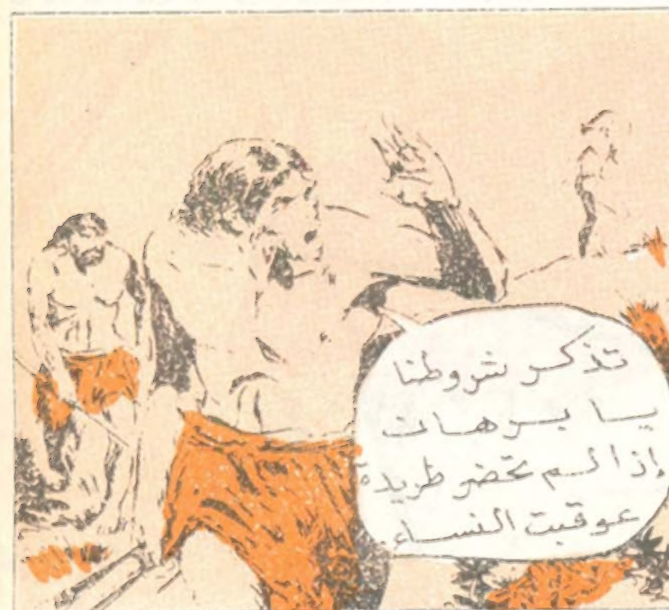 تذكر شروطنا
يا برهان
إذا لم تحضر طريدة
عوقبت النساء